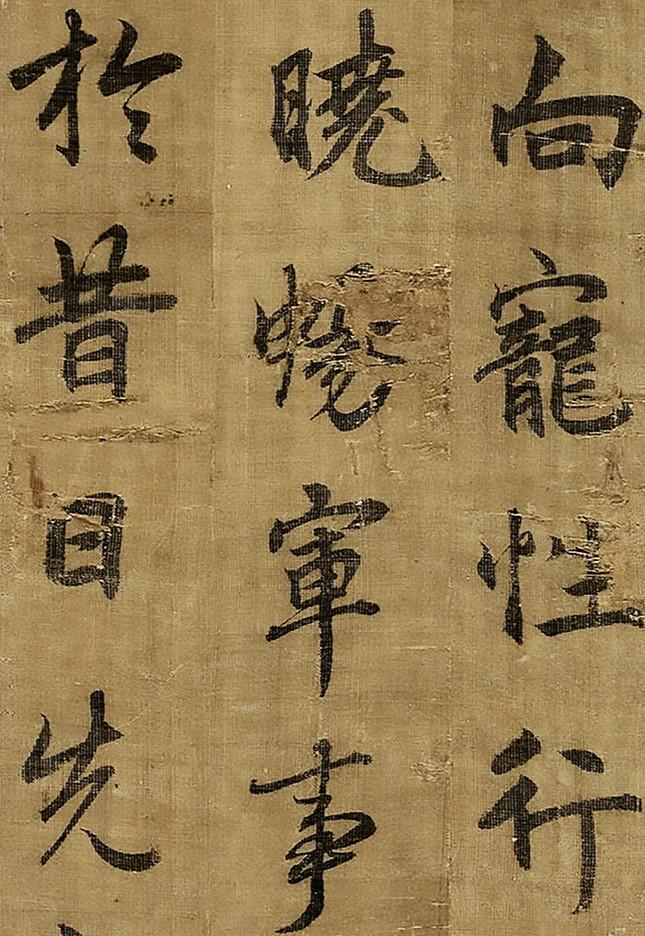 向寵性行
曉暢軍事
於昔日先